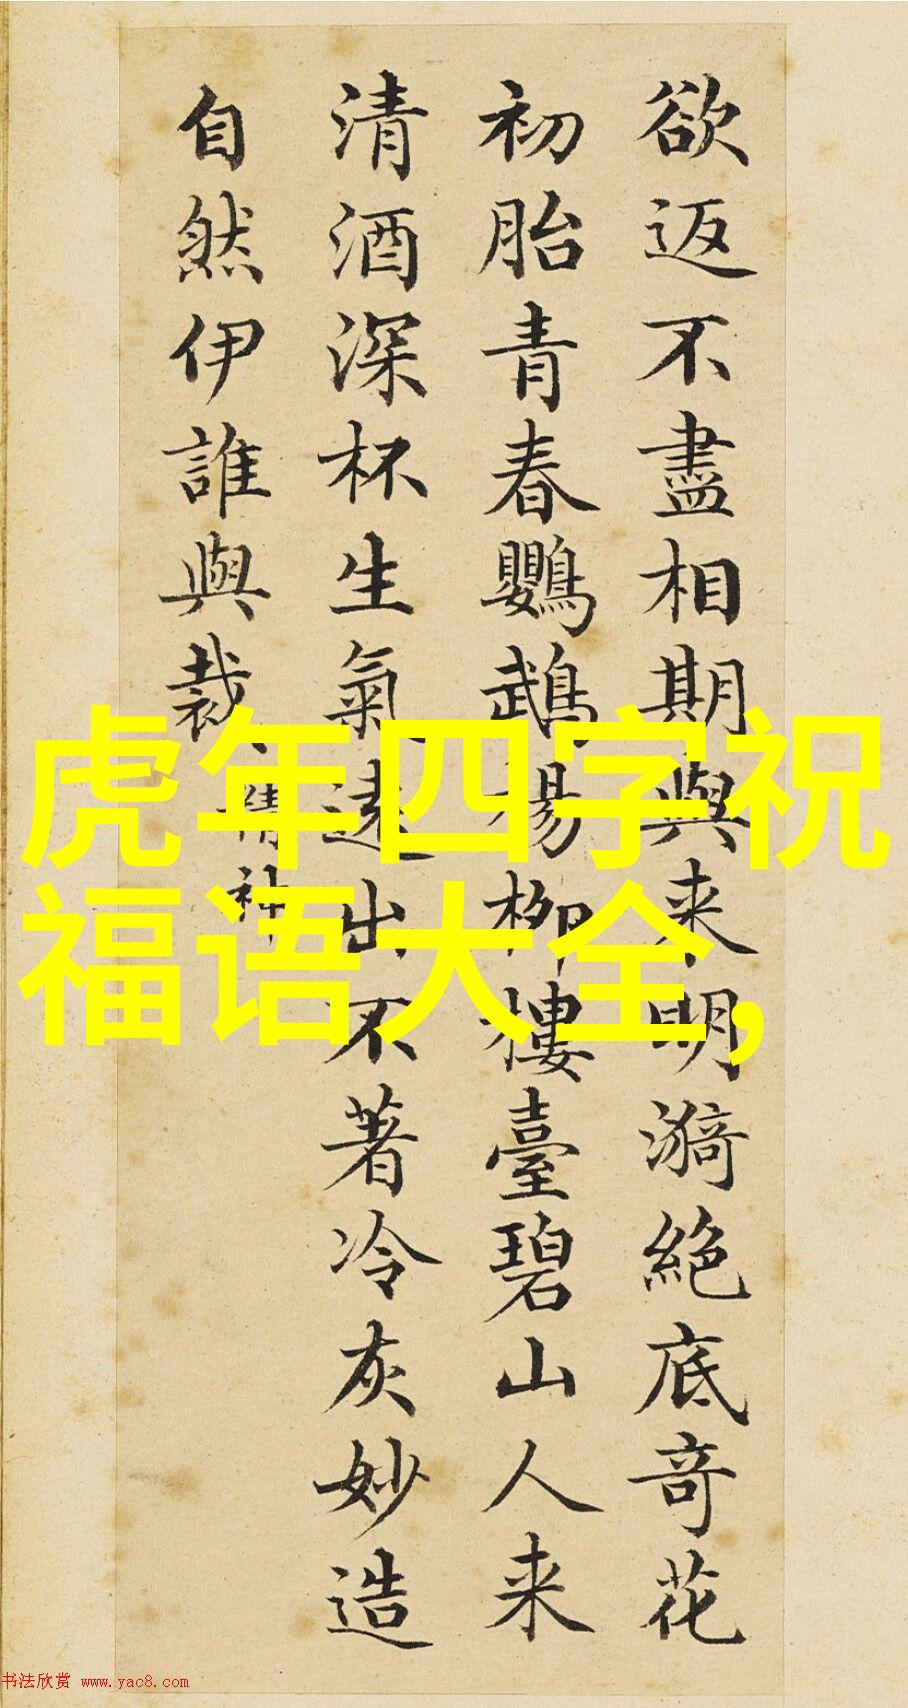 欲返不盡相期與来明漪絕底奇花
初胎青春鸚鵡楊柳樓臺碧山人来
清酒深杯生氣遠出不著冷灰妙造
自然伊誰與裁
精神
虎年四字祝
福语大全,
书法欣赏 www.yac8.com